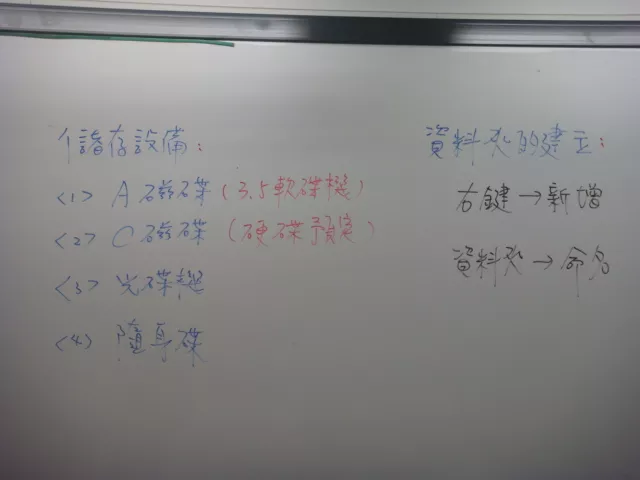 儲存設備:
<1> A磁碟(3.5軟碟機)
<2> C磁碟(硬碟預定)
<3> 光碟機
<4> 隨身碟
資料夾的建立:
右鍵→新增
資料夾→命名